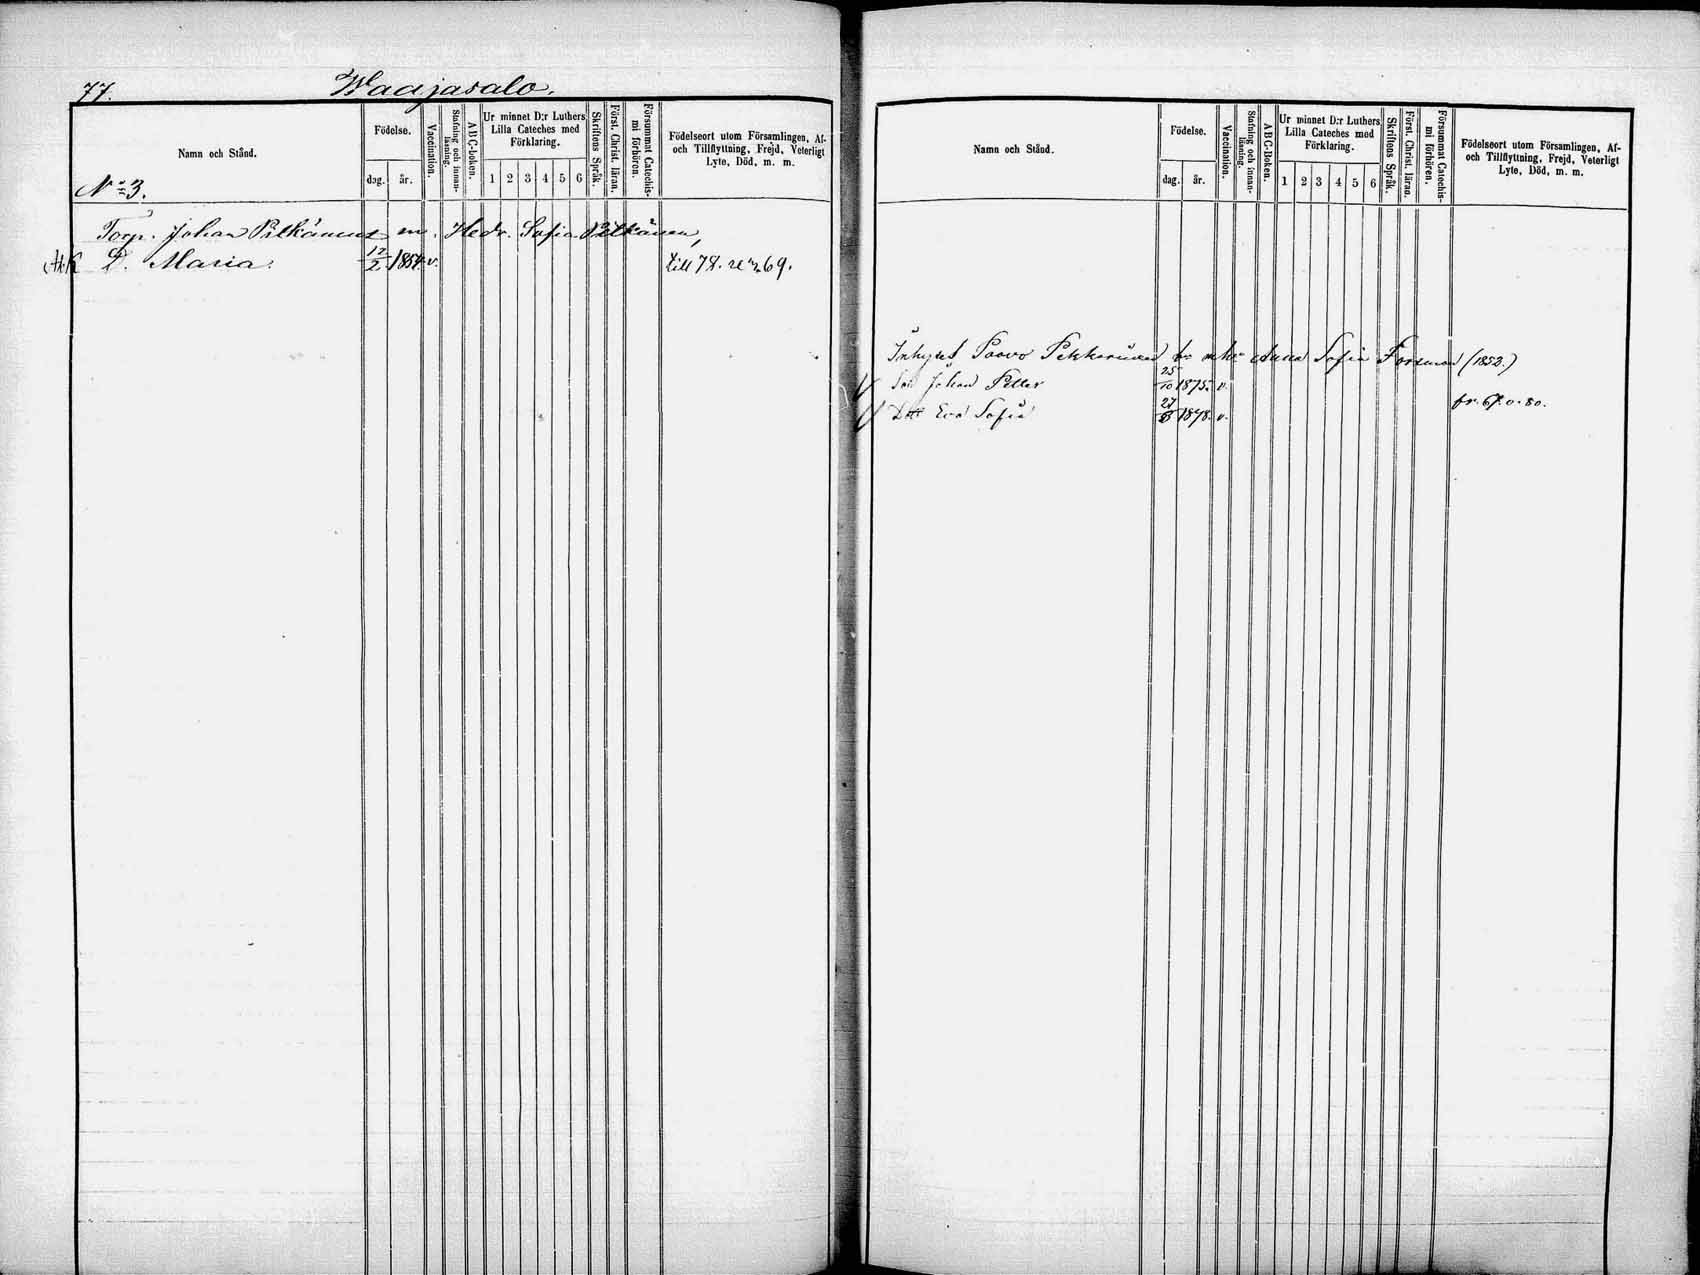 77. Waajasalo.
Namn och Stånd.
Födelse.
dag. år.
Vaccination.
Stafning och innan-läsning.
ABC-boken.
Ur minnet D:r Luthers Lilla Cateches med Förklaring.
1 2 3 4 5 6
Skriftens Språk.
Först. Christ. läran.
Försummat Catechis-mi förhören.
Födelseort utom Församlingen, Af- och Tillflyttning, Frejd, Veterligt Lyte, Död, m. m.
No 3.
Torp. Johan Pitkänens m. Hedv. Sofia Pitkänen,
D. Maria. 12/2 1854. v. till 78. 69.
Namn och Stånd.
Födelse.
dag. år.
Vaccination.
Stafning och innan-läsning.
ABC-boken.
Ur minnet D:r Luthers Lilla Cateches med Förklaring.
1 2 3 4 5 6
Skriftens Språk.
Först. Christ. läran.
Försummat Catechis-mi förhören.
Födelseort utom Församlingen, Af- och Tillflyttning, Frejd, Veterligt Lyte, Död, m. m.
Inhyses Paavo Pekkarinen Anna Sofia Forsman (1852.)
Son Johan Petter 25/10 1875. v.
Dott Eva Sofia 27 1878. v. fr. 67. o. 80.